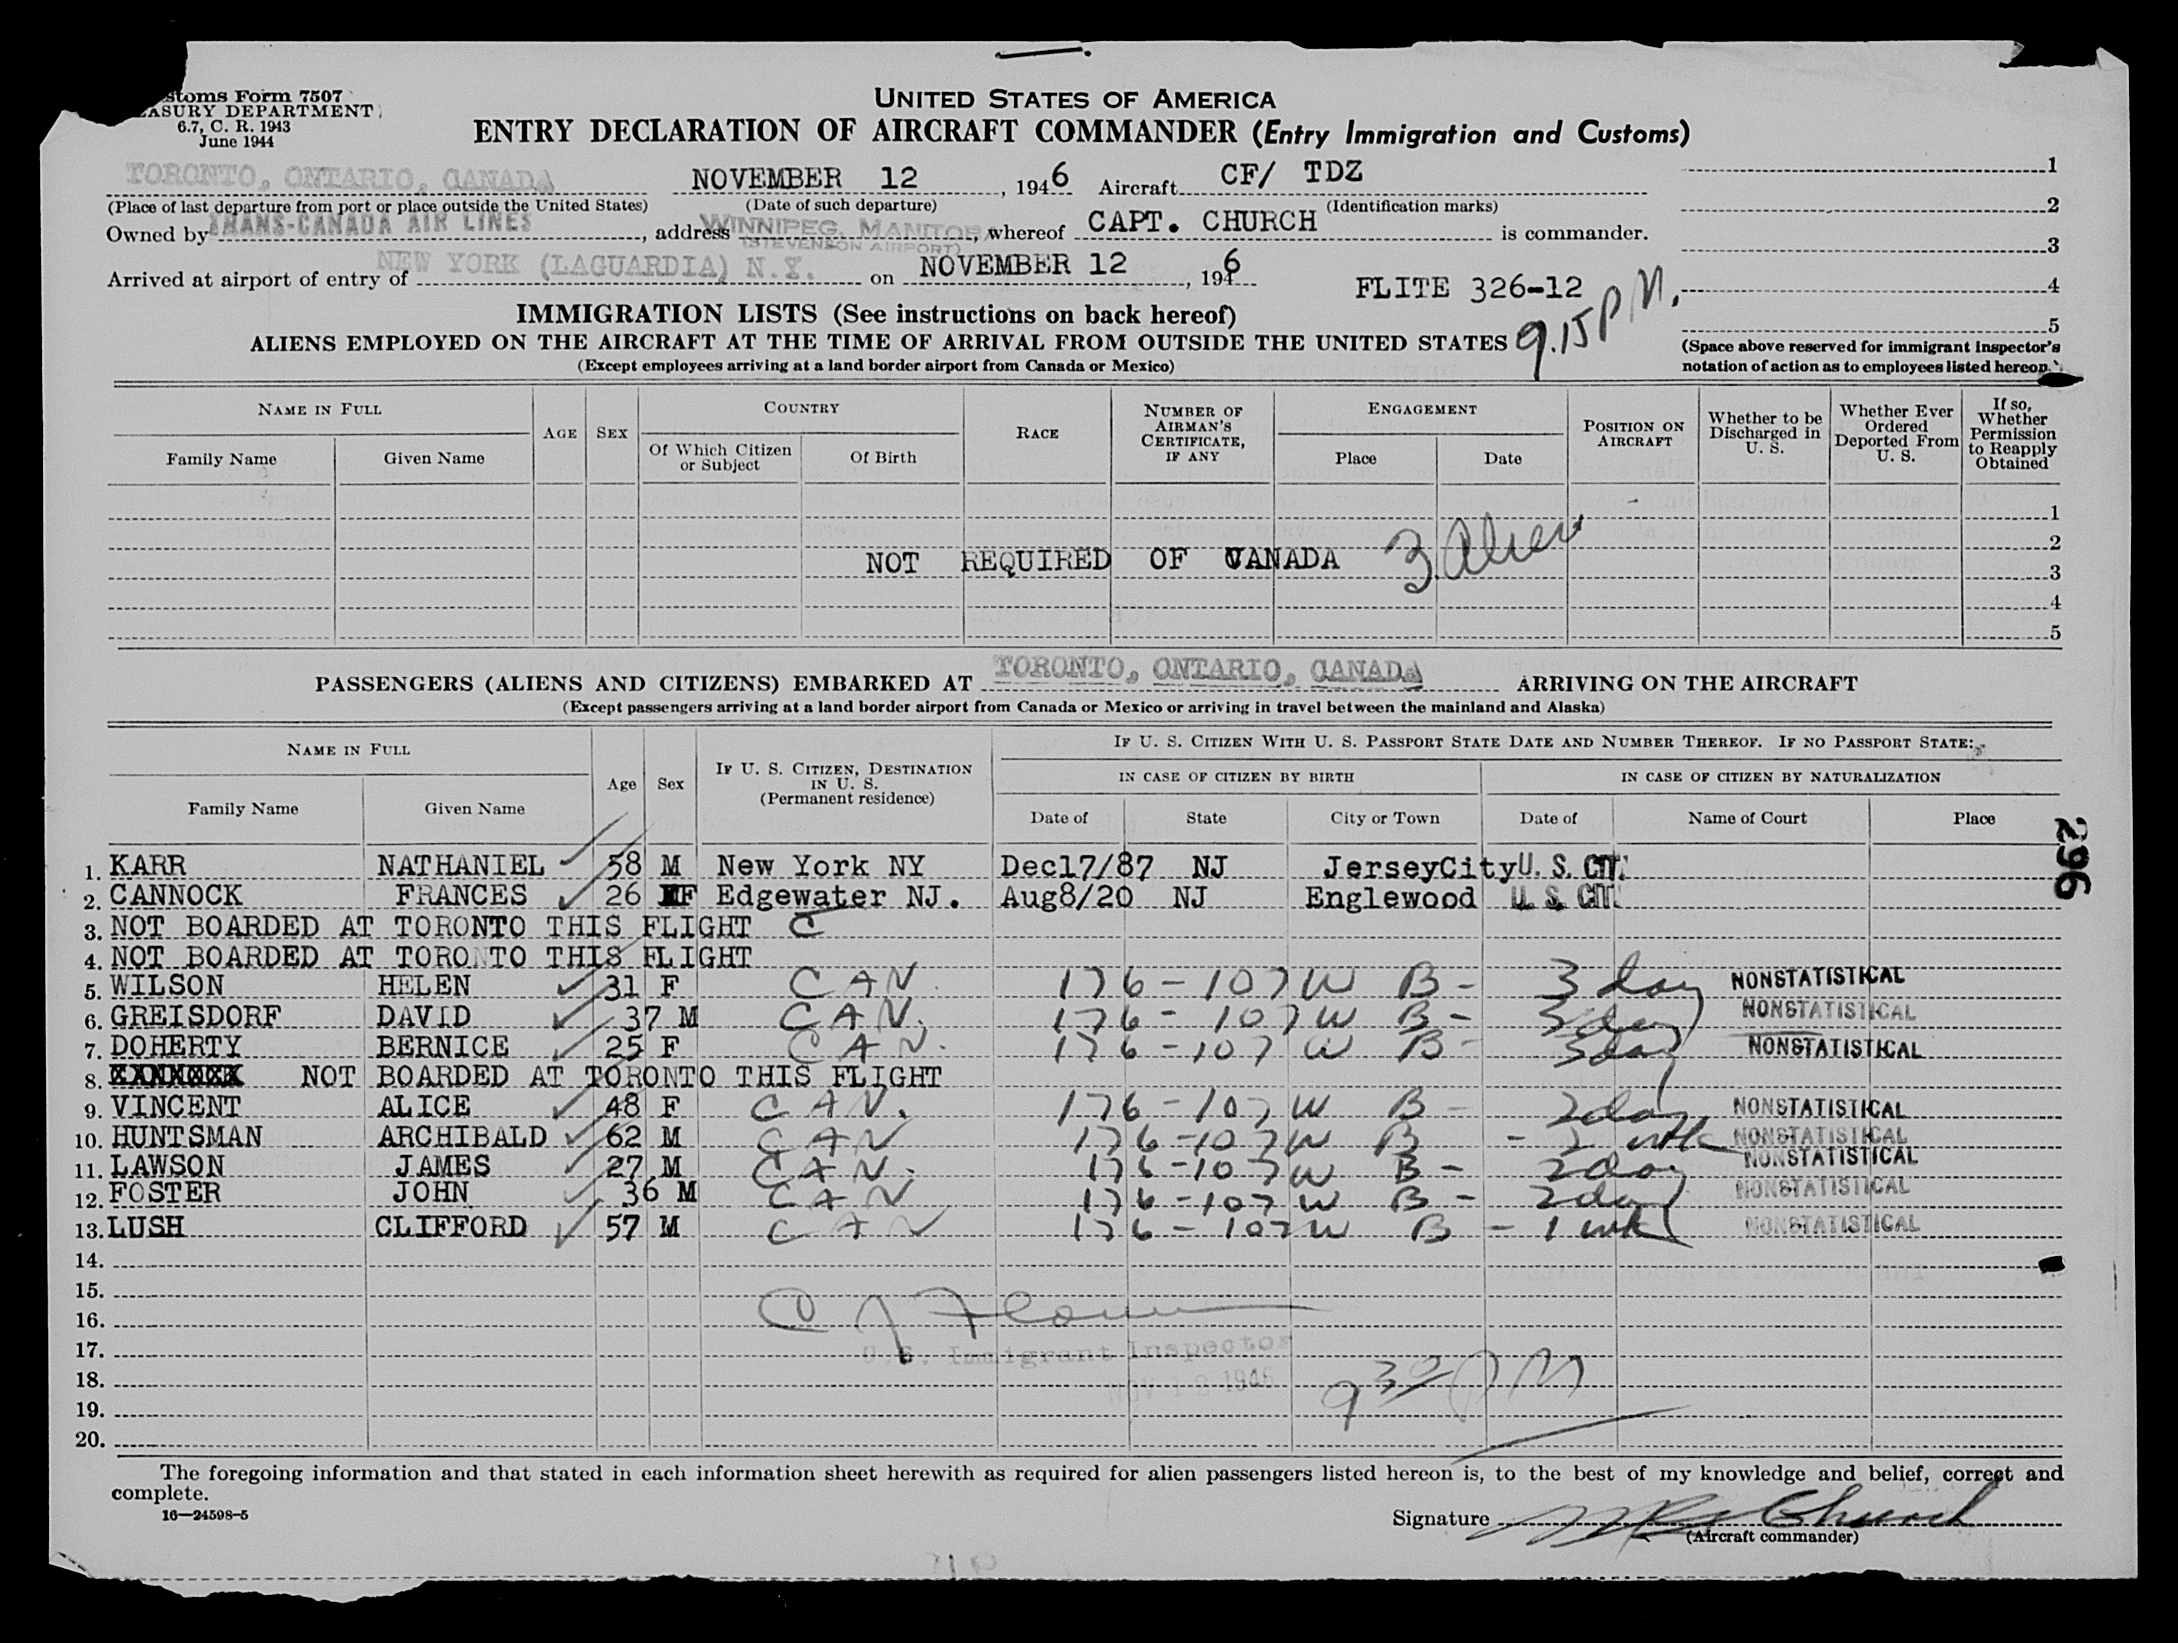 stoms Form 7507
ASURY DEPARTMENT
6.7, C. R. 1943
June 1944
UNITED STATES OF AMERICA
ENTRY DECLARATION OF AIRCRAFT COMMANDER (Entry Immigration and Customs)
TORONTO, ONTARIO, CANADA NOVEMBER 12, 1946 Aircraft CF/ TDZ
(Place of last departure from port or place outside the United States) (Date of such departure) (Identification marks)
Owned by TRANS-CANADA AIR LINES, address WINNIPEG, MANITOBA (STEVENSON AIRPORT), whereof CAPT. CHURCH is commander.
Arrived at airport of entry of NEW YORK (LAGUARDIA) N.Y. on NOVEMBER 12, 1946
FLITE 326-12
9.15 P M.
1
2
3
4
5
(Space above reserved for immigrant inspector's
notation of action as to employees listed hereon.)
IMMIGRATION LISTS (See instructions on back hereof)
ALIENS EMPLOYED ON THE AIRCRAFT AT THE TIME OF ARRIVAL FROM OUTSIDE THE UNITED STATES
(Except employees arriving at a land border airport from Canada or Mexico)
NAME IN FULL
Family Name Given Name
AGE SEX
COUNTRY
Of Which Citizen or Subject Of Birth
RACE
NUMBER OF AIRMAN'S CERTIFICATE, IF ANY
ENGAGEMENT
Place Date
POSITION ON AIRCRAFT
Whether to be Discharged in U. S.
Whether Ever Ordered Deported From U. S.
If so, Whether Permission to Reapply Obtained
1
2
NOT REQUIRED OF CANADA 3 Aliens
3
4
5
PASSENGERS (ALIENS AND CITIZENS) EMBARKED AT TORONTO, ONTARIO, CANADA ARRIVING ON THE AIRCRAFT
(Except passengers arriving at a land border airport from Canada or Mexico or arriving in travel between the mainland and Alaska)
NAME IN FULL
Family Name Given Name
Age Sex
IF U. S. CITIZEN, DESTINATION IN U. S. (Permanent residence)
IF U. S. CITIZEN WITH U. S. PASSPORT STATE DATE AND NUMBER THEREOF. IF NO PASSPORT STATE:
IN CASE OF CITIZEN BY BIRTH IN CASE OF CITIZEN BY NATURALIZATION
Date of State City or Town Date of Name of Court Place
296
1. KARR NATHANIEL 58 M New York NY Dec17/87 NJ JerseyCity U. S. CIT.
2. CANNOCK FRANCES 26 F Edgewater NJ. Aug8/20 NJ Englewood U. S. CIT.
3. NOT BOARDED AT TORONTO THIS FLIGHT C
4. NOT BOARDED AT TORONTO THIS FLIGHT
5. WILSON HELEN 31 F CAN 176-107 W B - 3 day NONSTATISTICAL
6. GREISDORF DAVID 37 M CAN. 176-107 W B - 3 day NONSTATISTICAL
7. DOHERTY BERNICE 25 F CAN. 176-107 W B - 3 day NONSTATISTICAL
8. NOT BOARDED AT TORONTO THIS FLIGHT
9. VINCENT ALICE 48 F CAN. 176-107 W B - 2 day NONSTATISTICAL
10. HUNTSMAN ARCHIBALD 62 M CAN 176-107 W B - 2 NONSTATISTICAL
11. LAWSON JAMES 27 M CAN. 176-107 W B - 2 day NONSTATISTICAL
12. FOSTER JOHN 36 M CAN 176-107 W B - 2 day NONSTATISTICAL
13. LUSH CLIFFORD 57 M CAN 176-107 W B - 1 wk NONSTATISTICAL
14.
15.
16.
17. U.S. Immigrant Inspector
18. NOV 12 1946 9 30 PM
19.
20.
The foregoing information and that stated in each information sheet herewith as required for alien passengers listed hereon is, to the best of my knowledge and belief, correct and
complete.
16—24598-5
Signature Church
(Aircraft commander)